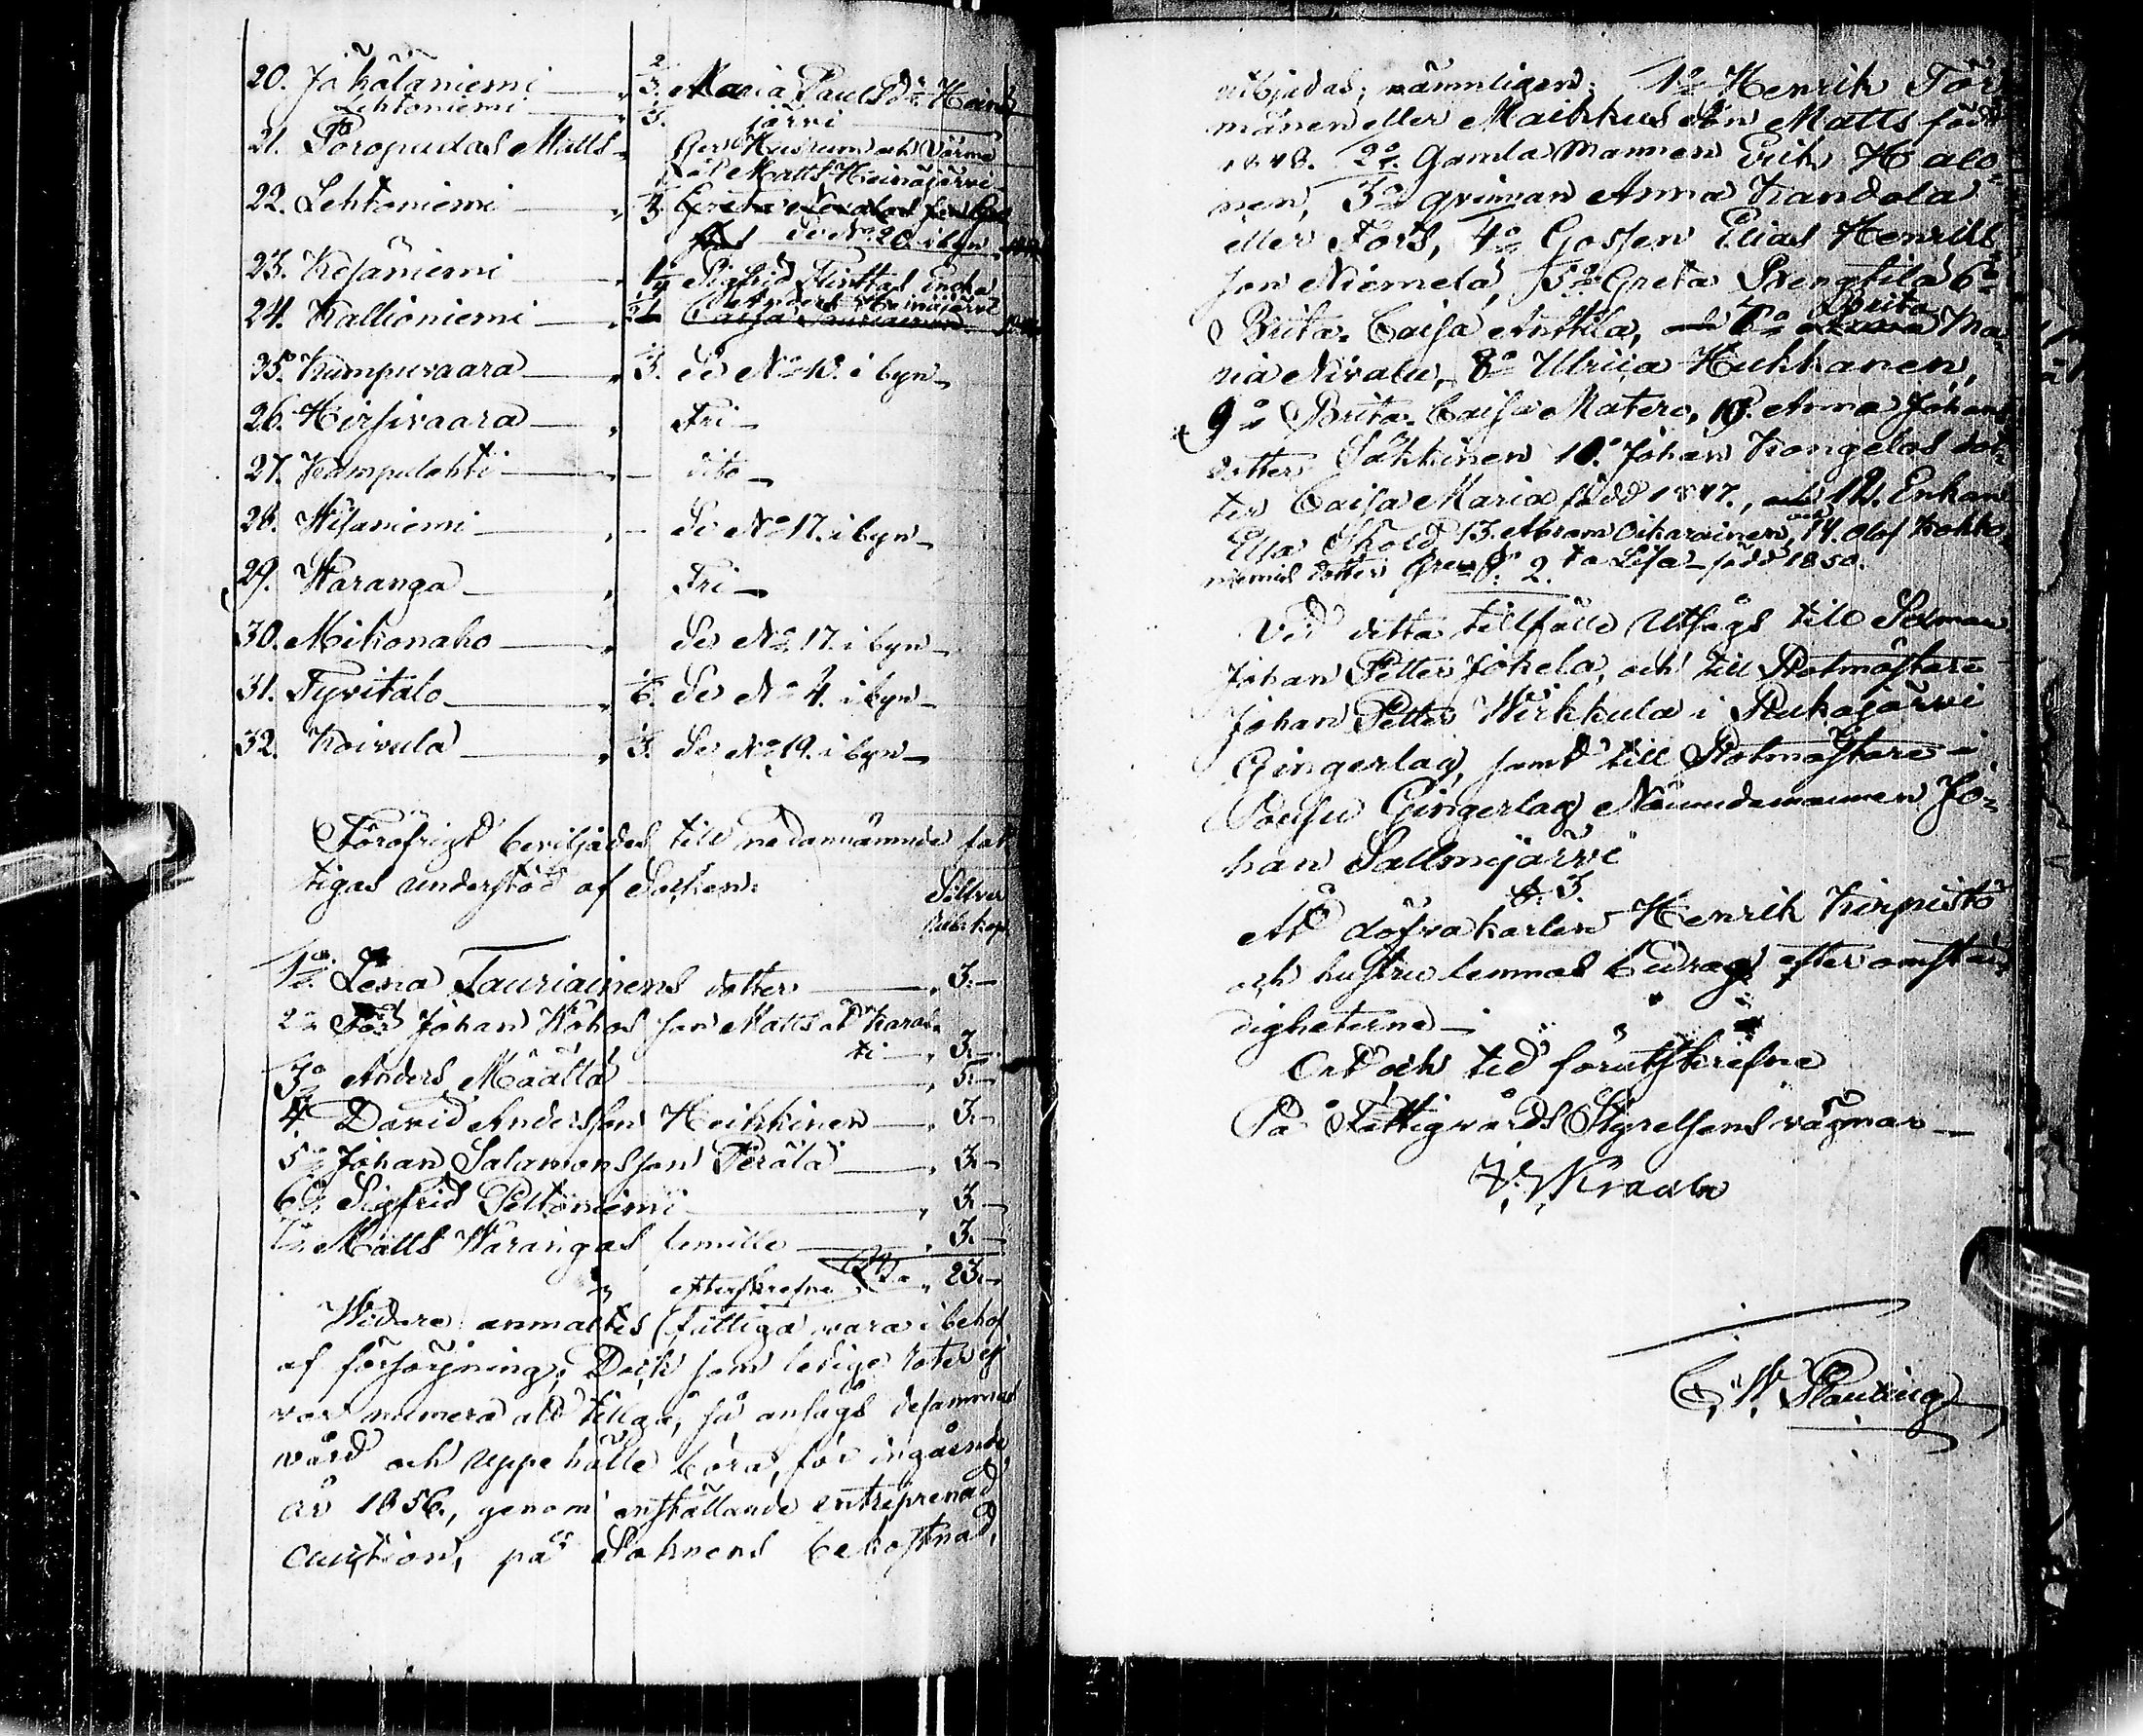 20. Jokölaniemi — " 2/3. Maria Paulsdr Heinä
Lehtoniemi — " 1/3. järvi
21. Poropudas Matts " ger Husrum och Värme
åt Matts Heinäjärvi
22. Lehtoniemi — " 1/3. Greta
se No 20 i byn
23. Kesäniemi — " 1/4 Sigfrid Flinttas Enka
24. Kallioniemi — " 1/21 Anders Heinäjärvi
Caisa Tauriainen
25. Kumpuvaara — " 1/3. se No 10. i byn —
26. Hirsivaara — " Fri —
27. Kumpulehti — " — dito —
28. Wisaniemi — " — Se No 17. i byn —
29. Waranga — " Fri —
30. Mikonaho — " Se No 17. i byn —
31. Tyvitalo — " 1/6. Se No 4. i byn —
32. Koivula — " 1/3. Se No 19. i byn —
Föröfrigt beviljades till nedannämnde fat
tigas understöd af Socken:
Silfver
Rub: kop
1o Lena Tauriainens dotter — " 3. —
2o Johan Kohos son Matts at Karah
ti — " 3. —
3o Anders Määttä — " 5. —
4. David Andersson Heikkinen — " 3. —
5o Johan Salamonsson Perälä — " 3. —
6o Sigfrid Peltoniemi — " 3. —
7o Matts Warangas — " 3. —
S:a " 23. —
efterskrefne
Widare anmältes fattiga vara i behof
af försörjning; Doch som ledige roter ej
var numera att tillgå, så ansågs desammas
vård och uppehälle böra, för ingående
år 1856., genom anställande entreprenad
auction, på Soknens bekostnad,
utbjudas; nämnligen: 1o Henrik Tör
mänen eller Maikkus Son Matts född
1848. 2o. Gamla Mannen Erik Halo=
nen, 3o qvinnan Anna Kandola
eller Fors, 4o Gossen Elias Henriks
son Niemelä, 5o Greta Pengtilä 6o
Brita Caisa Anttila, 7o Brita Ma=
ria Nivalu, 8o Ulrica Hukkanen,
9o Brita Caisa Matero, 10. Anna Johans
dotter Säkkinen 10. Johan Kongelos dot=
ter Caisa Maria född 1847., 12. Enkan
Elsa Sköld 13. Abram Oikarainen, och 14. Olof Kokko=
niemis dotter Greta Lisa — född 1850.
§. 2.
Vid detta tillfälle utsågs till Sexman
Johan Petter Jokela, och till Rotmästare
Johan Petter Wirkkula i Rukajärvi
Gingerlag, samt till Rotmästare i
Posju Gingerlag Nämndemannen Jo=
han Sallmijärvi
§. 3.
At döfva karlen Henrik Kinnistö
och hustru lemnas bidrag efter omstän
digheterne —
Ort och tid förutskrefne
På Fattigvårds Styrelsens vägnar —